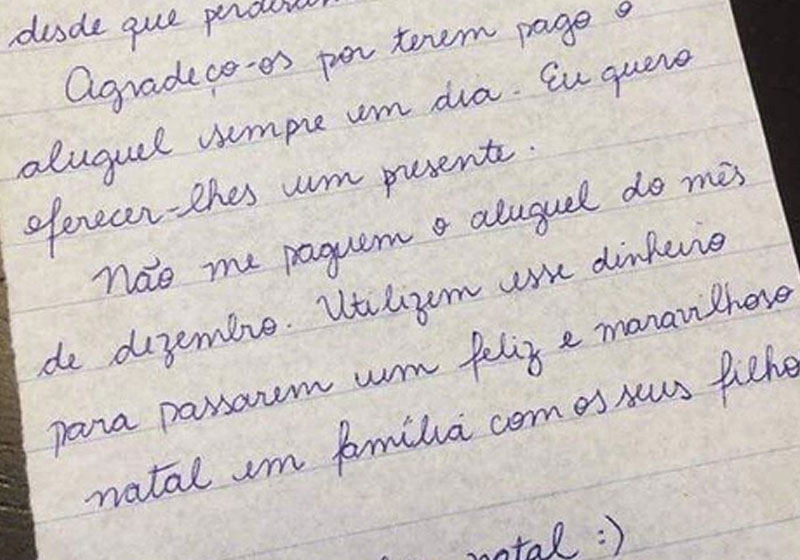 desde que perderam
Agradeço-os por terem pago o
aluguel sempre em dia. Eu quero
oferecer-lhes um presente.
Não me paguem o aluguel do mês
de dezembro. Utilizem esse dinheiro
para passarem um feliz e maravilhoso
natal em família com os seus filho
natal :)